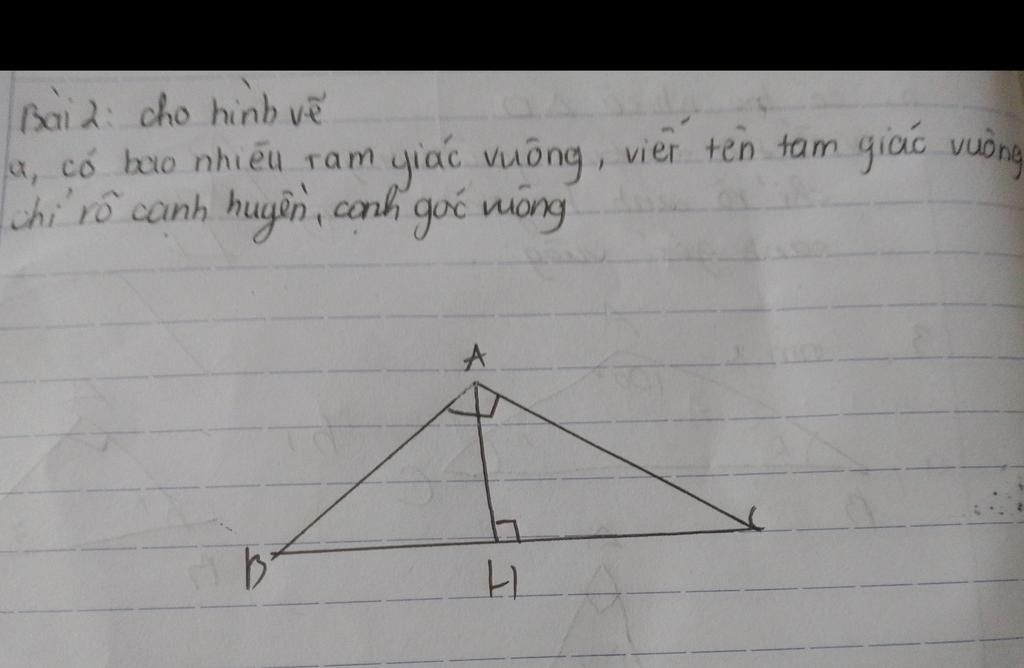 Bài 2: cho hình vẽ
a, có bao nhiêu tam giác vuông, viết tên tam giác vuông
chỉ rõ cạnh huyền, cạnh góc vuông
A
B
H
C